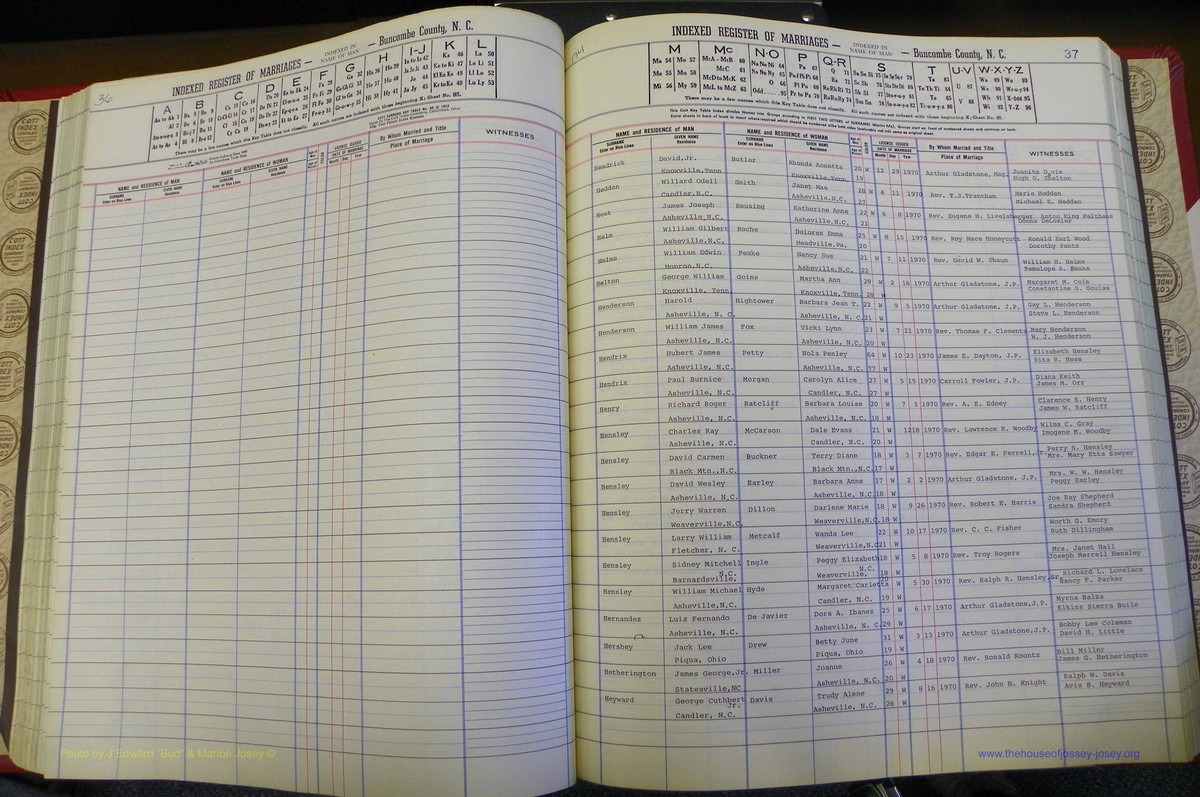 36
INDEXED REGISTER OF MARRIAGES — INDEXED IN NAME OF MAN — Buncombe County, N. C.
A B C D E F G H I-J K L
NAME and RESIDENCE OF MAN
NAME and RESIDENCE OF WOMAN
LICENSE ISSUED
By Whom Married and Title
Place of Marriage
WITNESSES
37
INDEXED REGISTER OF MARRIAGES — INDEXED IN NAME OF MAN — Buncombe County, N. C.
M Mc N-O P Q-R S T U-V W-X-Y-Z
NAME and RESIDENCE OF MAN
NAME and RESIDENCE OF WOMAN
LICENSE ISSUED
DATE OF MARRIAGE
By Whom Married and Title
Place of Marriage
WITNESSES
Headrick David, Jr. Butler Rhonda Annetta 20 W 12 29 1970 Arthur Gladstone, Mag. Juanita Davis
Knoxville, Tenn Knoxville, Tenn 19 Hugh G. Shelton
Hedden Willard Odell Smith Janet Mae 28 W 4 11 1970 Rev. T.J.Trantham Marie Hedden
Candler, N.C. Asheville, N.C. 22 Michael E. Hedden
Heet James Joseph Reusing Katherine Anne 22 W 6 8 1970 Rev. Eugene H. Livelsberger Anton King Felthaus
Asheville, N.C. Asheville, N.C. 21 Donna DeLozier
Helm William Gilbert Roche Delores Emma 25 W 8 15 1970 Rev. Roy Mace Honeycutt Ronald Earl Wood
Asheville, N.C. Meadville, Pa. 20 Dorothy Pentz
Helms William Edwin Peake Nancy Sue 21 W 7 11 1970 Rev. David W. Shaum William H. Helms
Monroe, N.C. Asheville, N.C. 22 Pamelope A. Peake
Helton George William Goins Martha Ann 29 W 2 16 1970 Arthur Gladstone, J.P. Margaret M. Cole
Knoxville, Tenn. Knoxville, Tenn. 28 W Constantine G. Goulas
Henderson Harold Hightower Barbara Jean T. 22 W 9 5 1970 Arthur Gladstone, J.P. Gay L. Henderson
Asheville, N. C. Asheville, N. C. 21 W Steve L. Henderson
Henderson William James Fox Vicki Lynn 23 W 7 21 1970 Rev. Thomas F. Clements Mary Henderson
Asheville, N.C. Asheville, N.C. 20 W W. J. Henderson
Hendrix Hubert James Petty Nola Penley 64 W 10 23 1970 James E. Dayton, J.P. Elizabeth Hensley
Asheville, N.C. Asheville, N.C. 77 W Rita R. Hess
Hendrix Paul Burnice Morgan Carolyn Alice 27 W 5 15 1970 Carroll Fowler, J.P. Diana Keith
Asheville, N.C. Candler, N.C. 27 W James M. Orr
Henry Richard Roger Ratcliff Barbara Louise 20 W 7 3 1970 Rev. A. E. Edney Clarence S. Henry
Asheville, N.C. Asheville, N.C. 18 W James W. Ratcliff
Hensley Charles Ray McCarson Dale Evans 21 W 12 18 1970 Rev. Lawrence R. Woodby Wilma C. Gray
Asheville, N.C. Candler, N.C. 20 W Imogene M. Woodby
Hensley David Carmen Buckner Terry Diane 18 W 3 7 1970 Rev. Edgar E. Ferrell, Jr. Perry S. Hensley
Black Mtn., N.C. Black Mtn., N.C. 17 W Mrs. Mary Etta Sawyer
Hensley David Wesley Earley Barbara Anne 17 W 2 2 1970 Arthur Gladstone, J.P. Mrs. W. W. Hensley
Asheville, N.C. Asheville, N.C. 18 W Peggy Earley
Hensley Jerry Warren Dillon Darlene Marie 18 W 9 26 1970 Rev. Robert E. Harris Joe Ray Shepherd
Weaverville, N.C. Weaverville, N.C. 18 W Sandra Shepherd
Hensley Larry William Metcalf Wanda Lee 22 W 10 17 1970 Rev. C. C. Fisher Worth G. Emory
Fletcher, N. C. Weaverville, N.C. 21 W Ruth Dillingham
Hensley Sidney Mitchell Ingle Peggy Elizabeth 18 W 5 8 1970 Rev. Troy Rogers Mrs. Janet Hall
Barnardsville, N.C. Weaverville, N.C. 18 W Joseph Merrell Hensley
Hensley William Michael Hyde Margaret Carletta 20 W 5 30 1970 Rev. Ralph R. Hensley, Sr. Richard L. Lovelace
Asheville, N.C. Candler, N.C. 19 W Nancy P. Parker
Hernandez Luiz Fernando De Javier Dora A. Ibanez 25 W 6 17 1970 Arthur Gladstone, J.P. Myrna Balza
Asheville, N.C. Asheville, N. C. 29 W Elkins Sierra Buile
Hershey Jack Lee Drew Betty June 31 W 3 13 1970 Arthur Gladstone, J.P. Bobby Lee Coleman
Piqua, Ohio Piqua, Ohio 19 W David H. Little
Hetherington James George, Jr. Miller Joanne 26 W 4 18 1970 Rev. Ronald Koontz Bill Miller
Statesville, NC Asheville, N.C. 20 W James G. Hetherington
Heyward George Cuthbert Jr. Davis Trudy Alene 29 W 8 16 1970 Rev. John H. Knight Ralph W. Davis
Candler, N.C. Asheville, N.C. 26 W Avis B. Heyward
Photo by J Edward "Bud" & Marion Josey ©
www.thehouseofjossey-josey.org